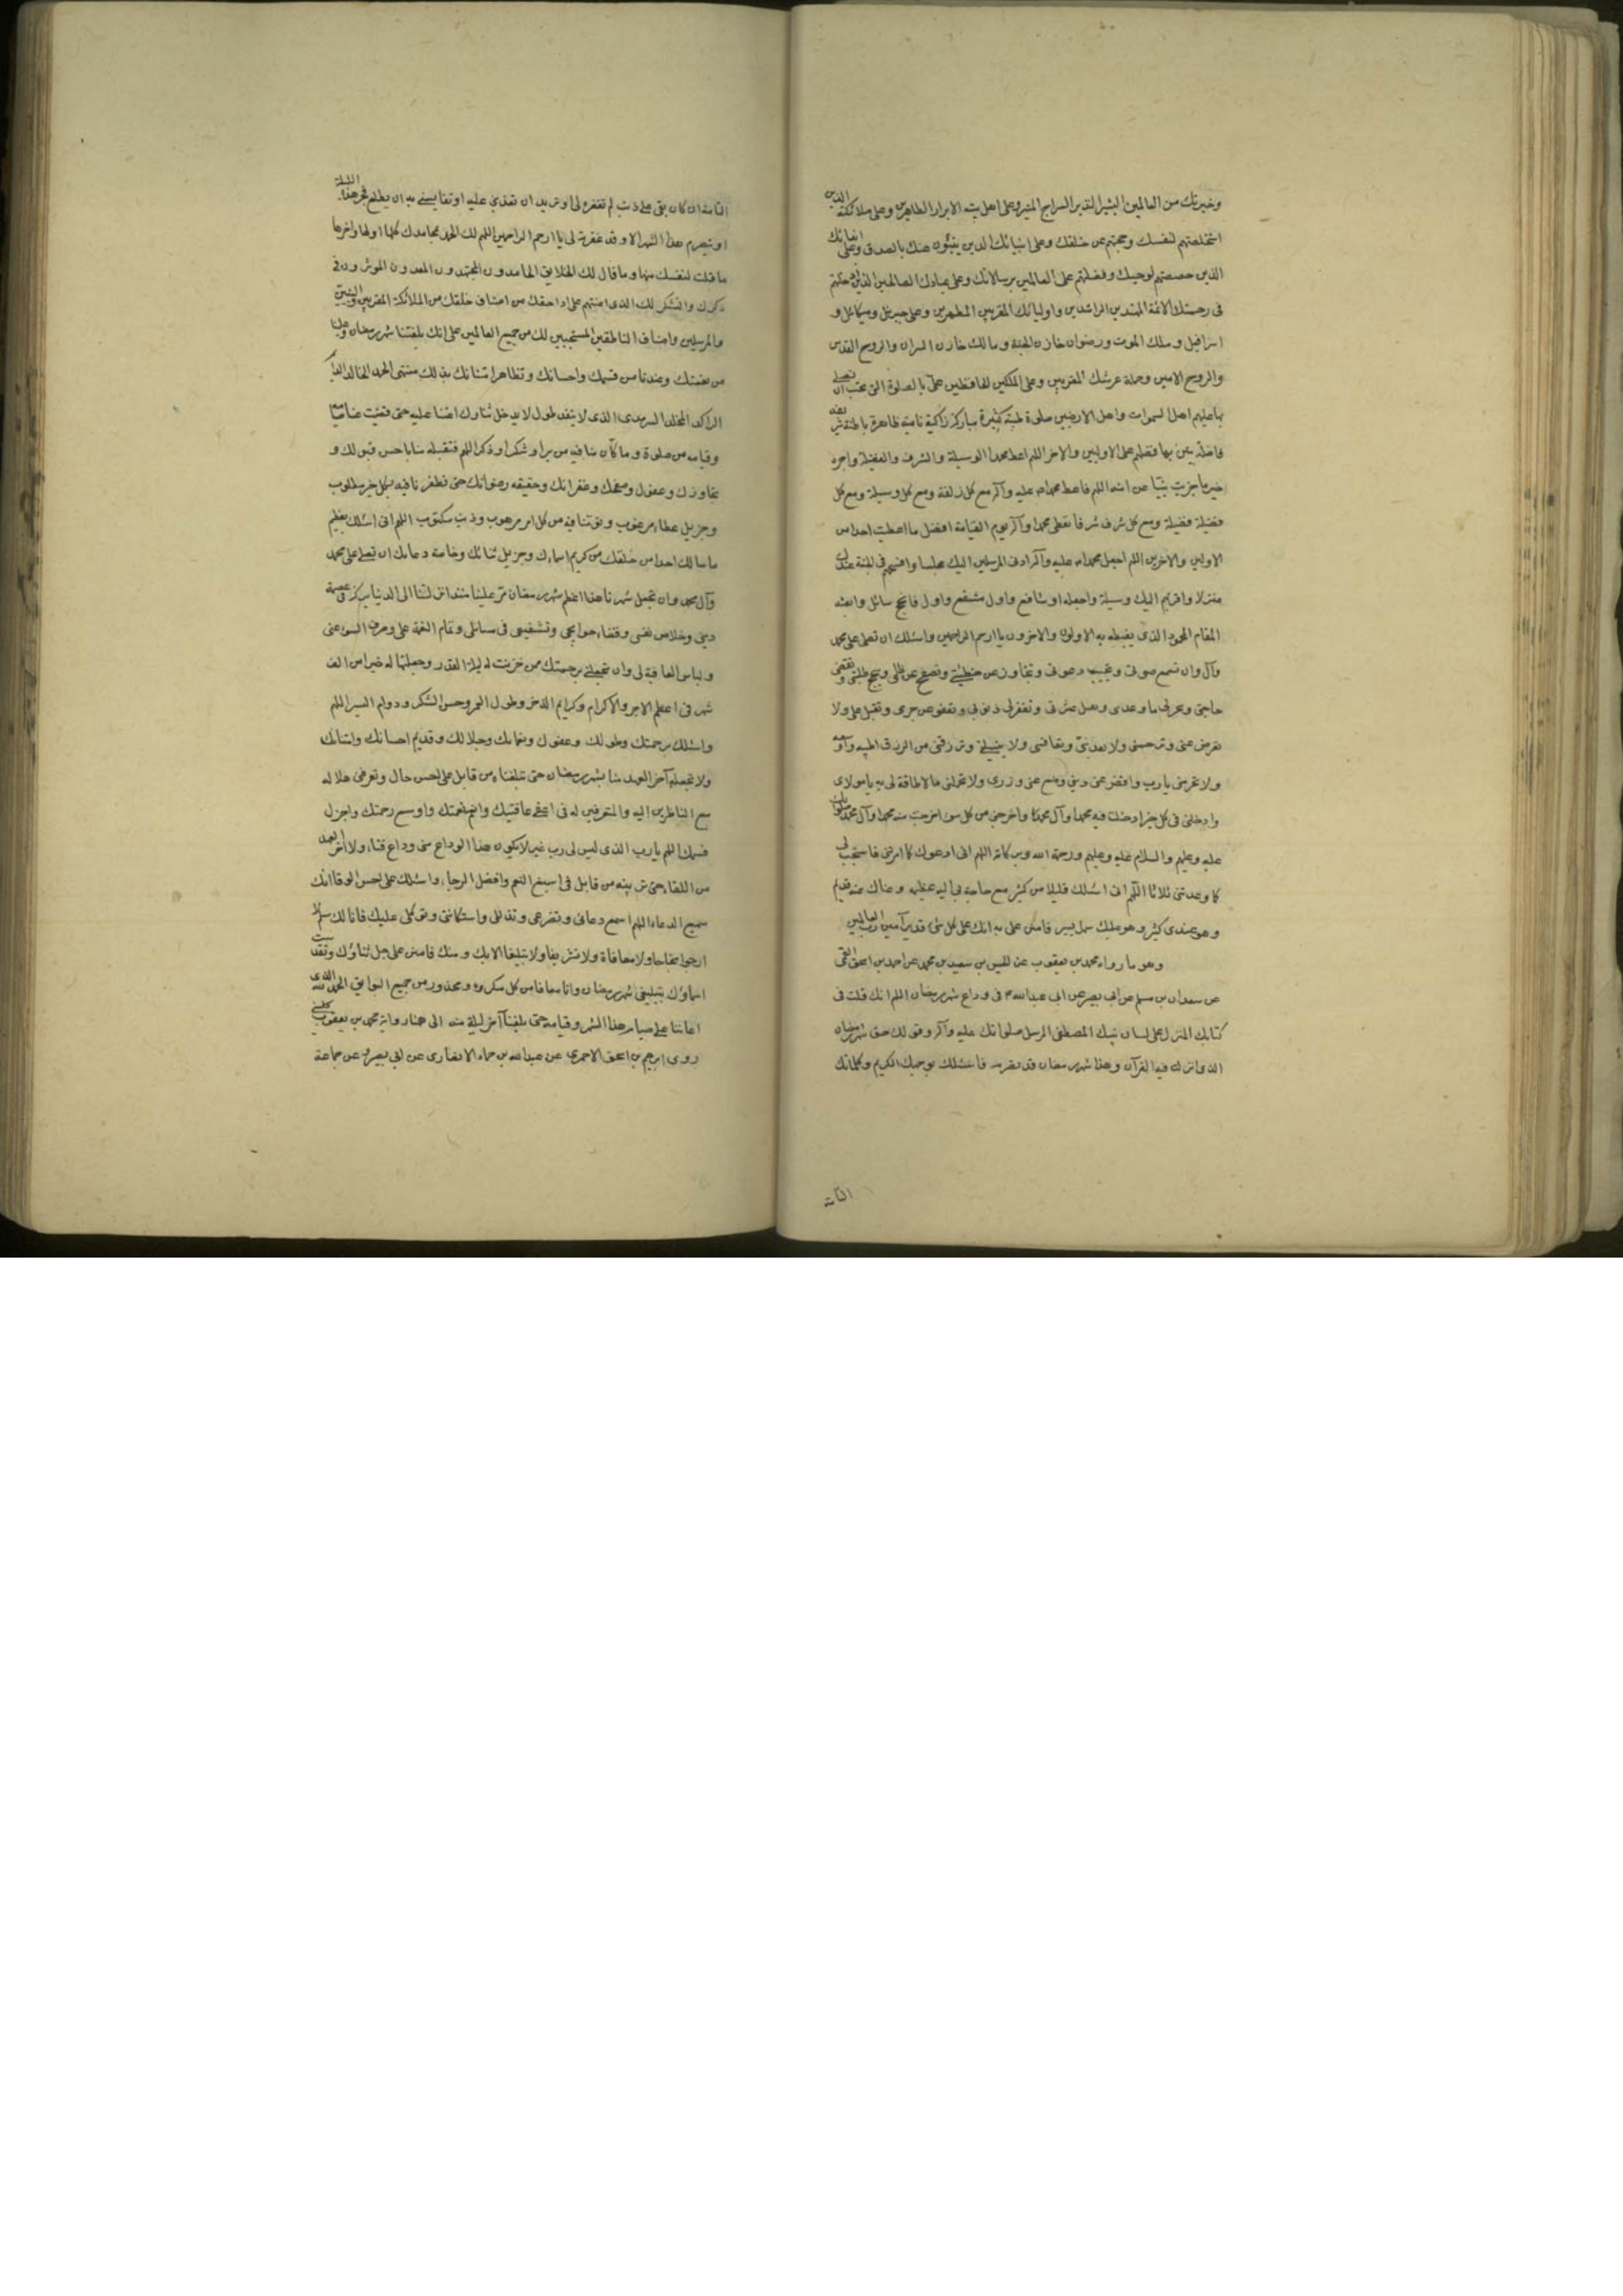 وخيرتك من العالمين البشير النذير السراج المنير وعلى اهل بيته الابرار الطاهرين وعلى ملائكتك الذين
استخلصتهم لنفسك وحجبتهم عن خلقك وعلى انبيائك الذين ينبئون عنك بالصدق وعلى
الذين خصصتهم لوحيك وفضلتهم على العالمين برسالاتك وعلى عبادك الصالحين الذين ادخلتهم
فى رحمتك الائمة المهتدين الراشدين واوليائك المقربين المطهرين وعلى جبريل وميكائل و
اسرافيل وملك الموت ورضوان خازن الجنة ومالك خازن النيران والروح القدس
والروح الامين وحملة عرشك المقربين وعلى الملكين الحافظين على بالصلوة التى تحب ان تصلى
بها عليهم اهل السموات واهل الارضين صلوة طيبة كثيرة مباركة زاكية نامية ظاهرة باطنة شريفة
فاضلة تبين بها فضلهم على الاولين والاخر اللهم اعط محمدا الوسيلة والشرف والفضيلة واجزه
خير ما جزيت نبيا عن امته اللهم فاعط محمدا صلى الله عليه وآله مع كل زلفة زلفة ومع كل وسيلة ومع كل
فضيلة فضيلة ومع كل شرف شرفا تعطى محمدا وآله يوم القيامة افضل ما اعطيت احدا من
الاولين والاخرين اللهم اجعل محمدا صلى الله عليه وآله ادنى المرسلين اليك مجلسا وافسحهم فى الجنة عندك
منزلا واقربهم اليك وسيلة واجعله اول شافع واول مشفع واول قائل وانجح سائل وابعثه
المقام المحمود الذى يغبطه به الاولون والاخرون يا ارحم الراحمين واسئلك ان تصلى على محمد
وآل وان تسمع صوتى وتجيب دعوتى وتجاوز عن خطيئتى وتصفح عن ظلمى وتنجح طلبتى وتقضى
حاجتى وتنجز لى ما وعدتنى وتقبل عثرتى وتغفر لى ذنوبى وتعفو عن جرمى وتقبل على ولا
تعرض عنى وترحمنى ولا تعذبنى وتعافنى ولا تبتلينى وترزقنى من الرزق اطيبه واوسعه
ولا تحرمنى يا رب واقض عنى دينى وضع عنى وزرى ولا تحملنى ما لا طاقة لى به يا مولاى
وادخلنى فى كل خير ادخلت فيه محمدا وآل محمد واخرجنى من كل سوء اخرجت منه محمدا وآل محمد صلواتك
عليه وعليهم والسلام عليه وعليهم ورحمة الله وبركاته اللهم انى ادعوك كما امرتنى فاستجب لى
كما وعدتنى ثلاثا اللهم انى اسئلك قليلا من كثير مع حاجة بى اليه عظيمه وغناك عنه قديم
وهو عندى كثير وهو عليك سهل يسير فامنن على به انك على كل شئ قدير آمين رب العالمين
وهو ما رواه محمد بن يعقوب عن الحسين بن سعيد بن محمد عن احمد بن اسحق القمى
عن سعدان بن مسلم عن ابى بصير عن ابى عبد الله ع فى وداع شهر رمضان اللهم انك قلت فى
كتابك المنزل على لسان نبيك المصطفى المرسل صلواتك عليه وآله وقولك حق شهر رمضان
الذى انزل فيه القرآن وهذا شهر رمضان قد تصرم فاسئلك بوجهك الكريم وكلماتك
التامة
التامة ان كان بقى على ذنب لم تغفره لى او تريد ان تعذبنى عليه او تقايسنى به ان يطلع فجر هذه الليلة
او يتصرم هذا الشهر الا وقد غفرته لى يا ارحم الراحمين اللهم لك الحمد بمحامدك كلها اولها واخرها
ما قلت لنفسك منها وما قال لك الخلايق الحامدون المجتهدون المعدون الموثرون فى
ذكرك والشكر لك الذى اعنتهم على اداء حقك من اصناف خلقك من الملائكة المقربين والنبيين
والمرسلين واصناف الناطقين المستجيبين لك من جميع العالمين على انك بلغتنا شهر رمضان وعلينا
من نعمتك وعندنا من قسمك واحسانك وتظاهر امتنانك بذلك منتهى الحمد الخالد الدائم
الراكد المخلد السرمدى الذى لا ينفد طول الابد جل ثناؤك اعنتنا عليه حتى قضيت عنا صيامه
وقيامه من صلوة وما كان منا فيه من بر او شكر او ذكر اللهم فتقبله منا باحسن قبولك و
تجاوزك وعفوك وصفحك وغفرانك وحقيقه رضوانك حتى تظفرنا فيه بكل خير مطلوب
وجزيل عطاء موهوب وتوقنا فيه من كل امر مرهوب وذنب مكتوب اللهم انى اسئلك بعظيم
ما سالك احد من خلقك من كريم اسمائك وجزيل ثنائك وخاصة دعائك ان تصلى على محمد
وآل محمد وان تجعل شهرنا هذا اعظم شهر رمضان مر علينا منذ انزلتنا الى الدنيا بركة فى عصمة
دينى وخلاص نفسى وقضاء حوايجى وتشفيعى فى مسائلى وتمام النعمة على وصرف السوء عنى
ولباس العافية لى وان تجعلنى برحمتك ممن خزيت له ليلة القدر وجعلتها له خيرا من الف
شهر فى اعظم الاجر والاكرام وكرايم الذخر وطول العمر وحسن الشكر ودوام اليسر اللهم
واسئلك برحمتك وطولك وعفوك ونعمائك وجلالك وقديم احسانك وامتنانك
ولا تجعله آخر العهد منا بشهر رمضان حتى تبلغناه من قابل على احسن حال وتعرفنى هلاله
مع الناظرين اليه والمتعرفين له فى اعفى عافيتك وانعم نعمتك واوسع رحمتك واجزل
قسمك اللهم يا رب الذى ليس لى رب غيره لا يكون هذا الوداع منى وداع فناء ولا آخر العهد
من اللقاء حتى ترينه من قابل فى اسبغ النعم وافضل الرجاء واسئلك على احسن الوفاء انك
سميع الدعاء اللهم اسمع دعائى وتضرعى وتذللى واستكانتى وتوكلى عليك فانا لك سلم لا
ارجوا نجاحا ولا معافاة ولا تشريفا ولا تبليغا الا بك ومنك فامنن على جل ثناؤك وتقدست
اسماؤك بتبليغى شهر رمضان وانا معافا من كل مكروه ومحذور من جميع البوايق الحمد لله الذى
اعاننا على صيام هذا الشهر وقيامه حتى بلغنا آخر ليلة منه الى هنا رواية محمد بن يعقوب كلينى
روى ابرهيم بن اسحق الاحمرى عن عبد الله بن حماد الانصارى عن ابى بصير وعن جماعة